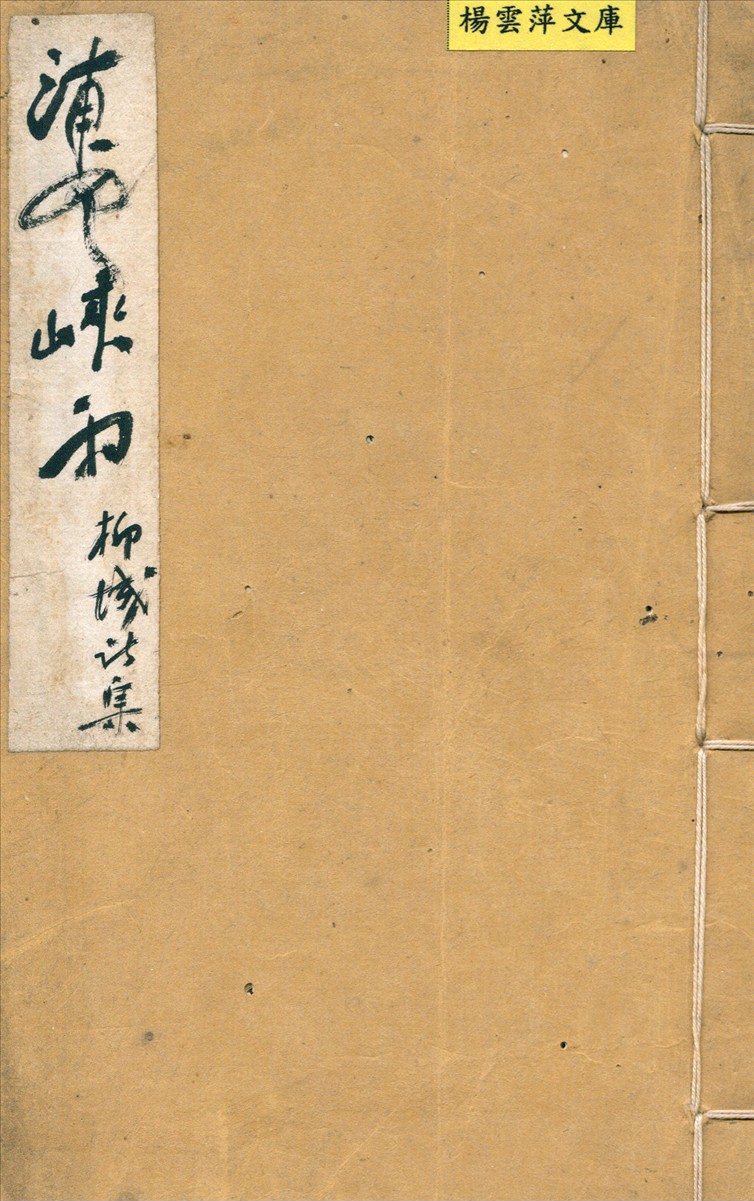 楊雲萍文庫
浦雲峽雨
柳城詩集